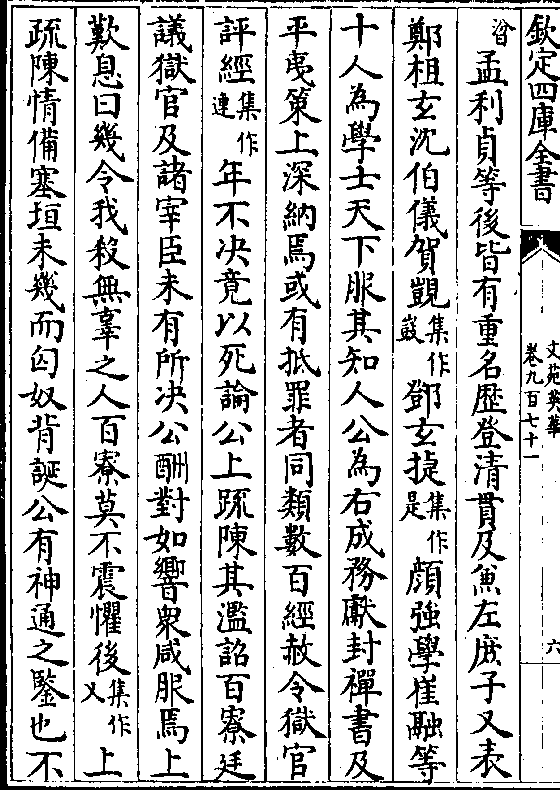 欽定四庫全書
文苑英華
卷九百七十一
六
詧孟利貞等後皆有重名歴登清貫及兼左庶子又表
鄭祖玄沈伯儀賀覬集作敱鄧玄挺集作是顔強學崔融等
十人為學士天下服其知人公為右成務獻封禪書及
平夷策上深納焉或有抵罪者同類數百經赦令獄官
評經集作連年不决竟以死論公上疏陳其濫詔百寮廷
議獄官及諸宰臣未有所决公酬對如響衆咸服焉上
歎息曰幾令我殺無辜之人百寮莫不震懼後集作又上
疏陳情備塞垣未幾而匈奴背誕公有神通之鑒也不